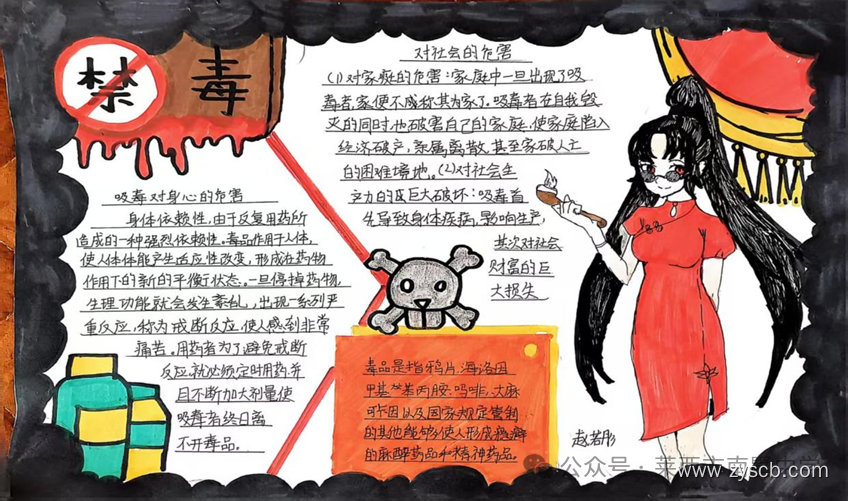 禁毒
对社会的危害
(1)对家庭的危害:家庭中一旦出现了吸
毒者,家便不成称其为家了。吸毒者在自我毁
灭的同时,也破害自己的家庭,使家庭陷入
经济破产,亲属离散,甚至家破人亡
的困难境地。(2)对社会生
产力的巨大破坏:吸毒首
先导致身体疾病,影响生产,
其次对社会
财富的巨
大损失
吸毒对身心的危害
身体依赖性,由于反复用药所
造成的一种强烈依赖性。毒品作用于人体,
使人体体能产生适应性改变,形成在药物
作用下的新的平衡状态。一旦停掉药物,
生理功能就会发生紊乱,出现一系列严
重反应,称为戒断反应,使人感到非常
痛苦。用药者为了避免戒断
反应,就必须定时用药,并
且不断加大剂量,使
吸毒者终日离
不开毒品。
毒品是指鸦片,海洛因
甲基苯基丙胺,吗啡,大麻
可卡因以及国家规定管制
的其他能够使人形成瘾癖
的麻醉药品和精神药品。
赵若彤
公众号·莱西市南
www.zyscb.com